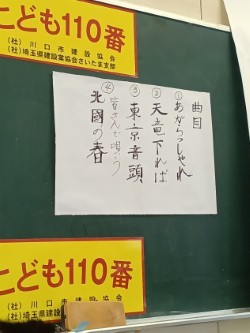 こども110番
(社)川口市建設協会
(社)埼玉県建設業協会さいたま支部
曲目
①あがらっしゃれ
②天竜下れば
③東京音頭
④皆さんで唄う
北國の春
こども110番
(社)川口市建設協会
(社)埼玉県建設